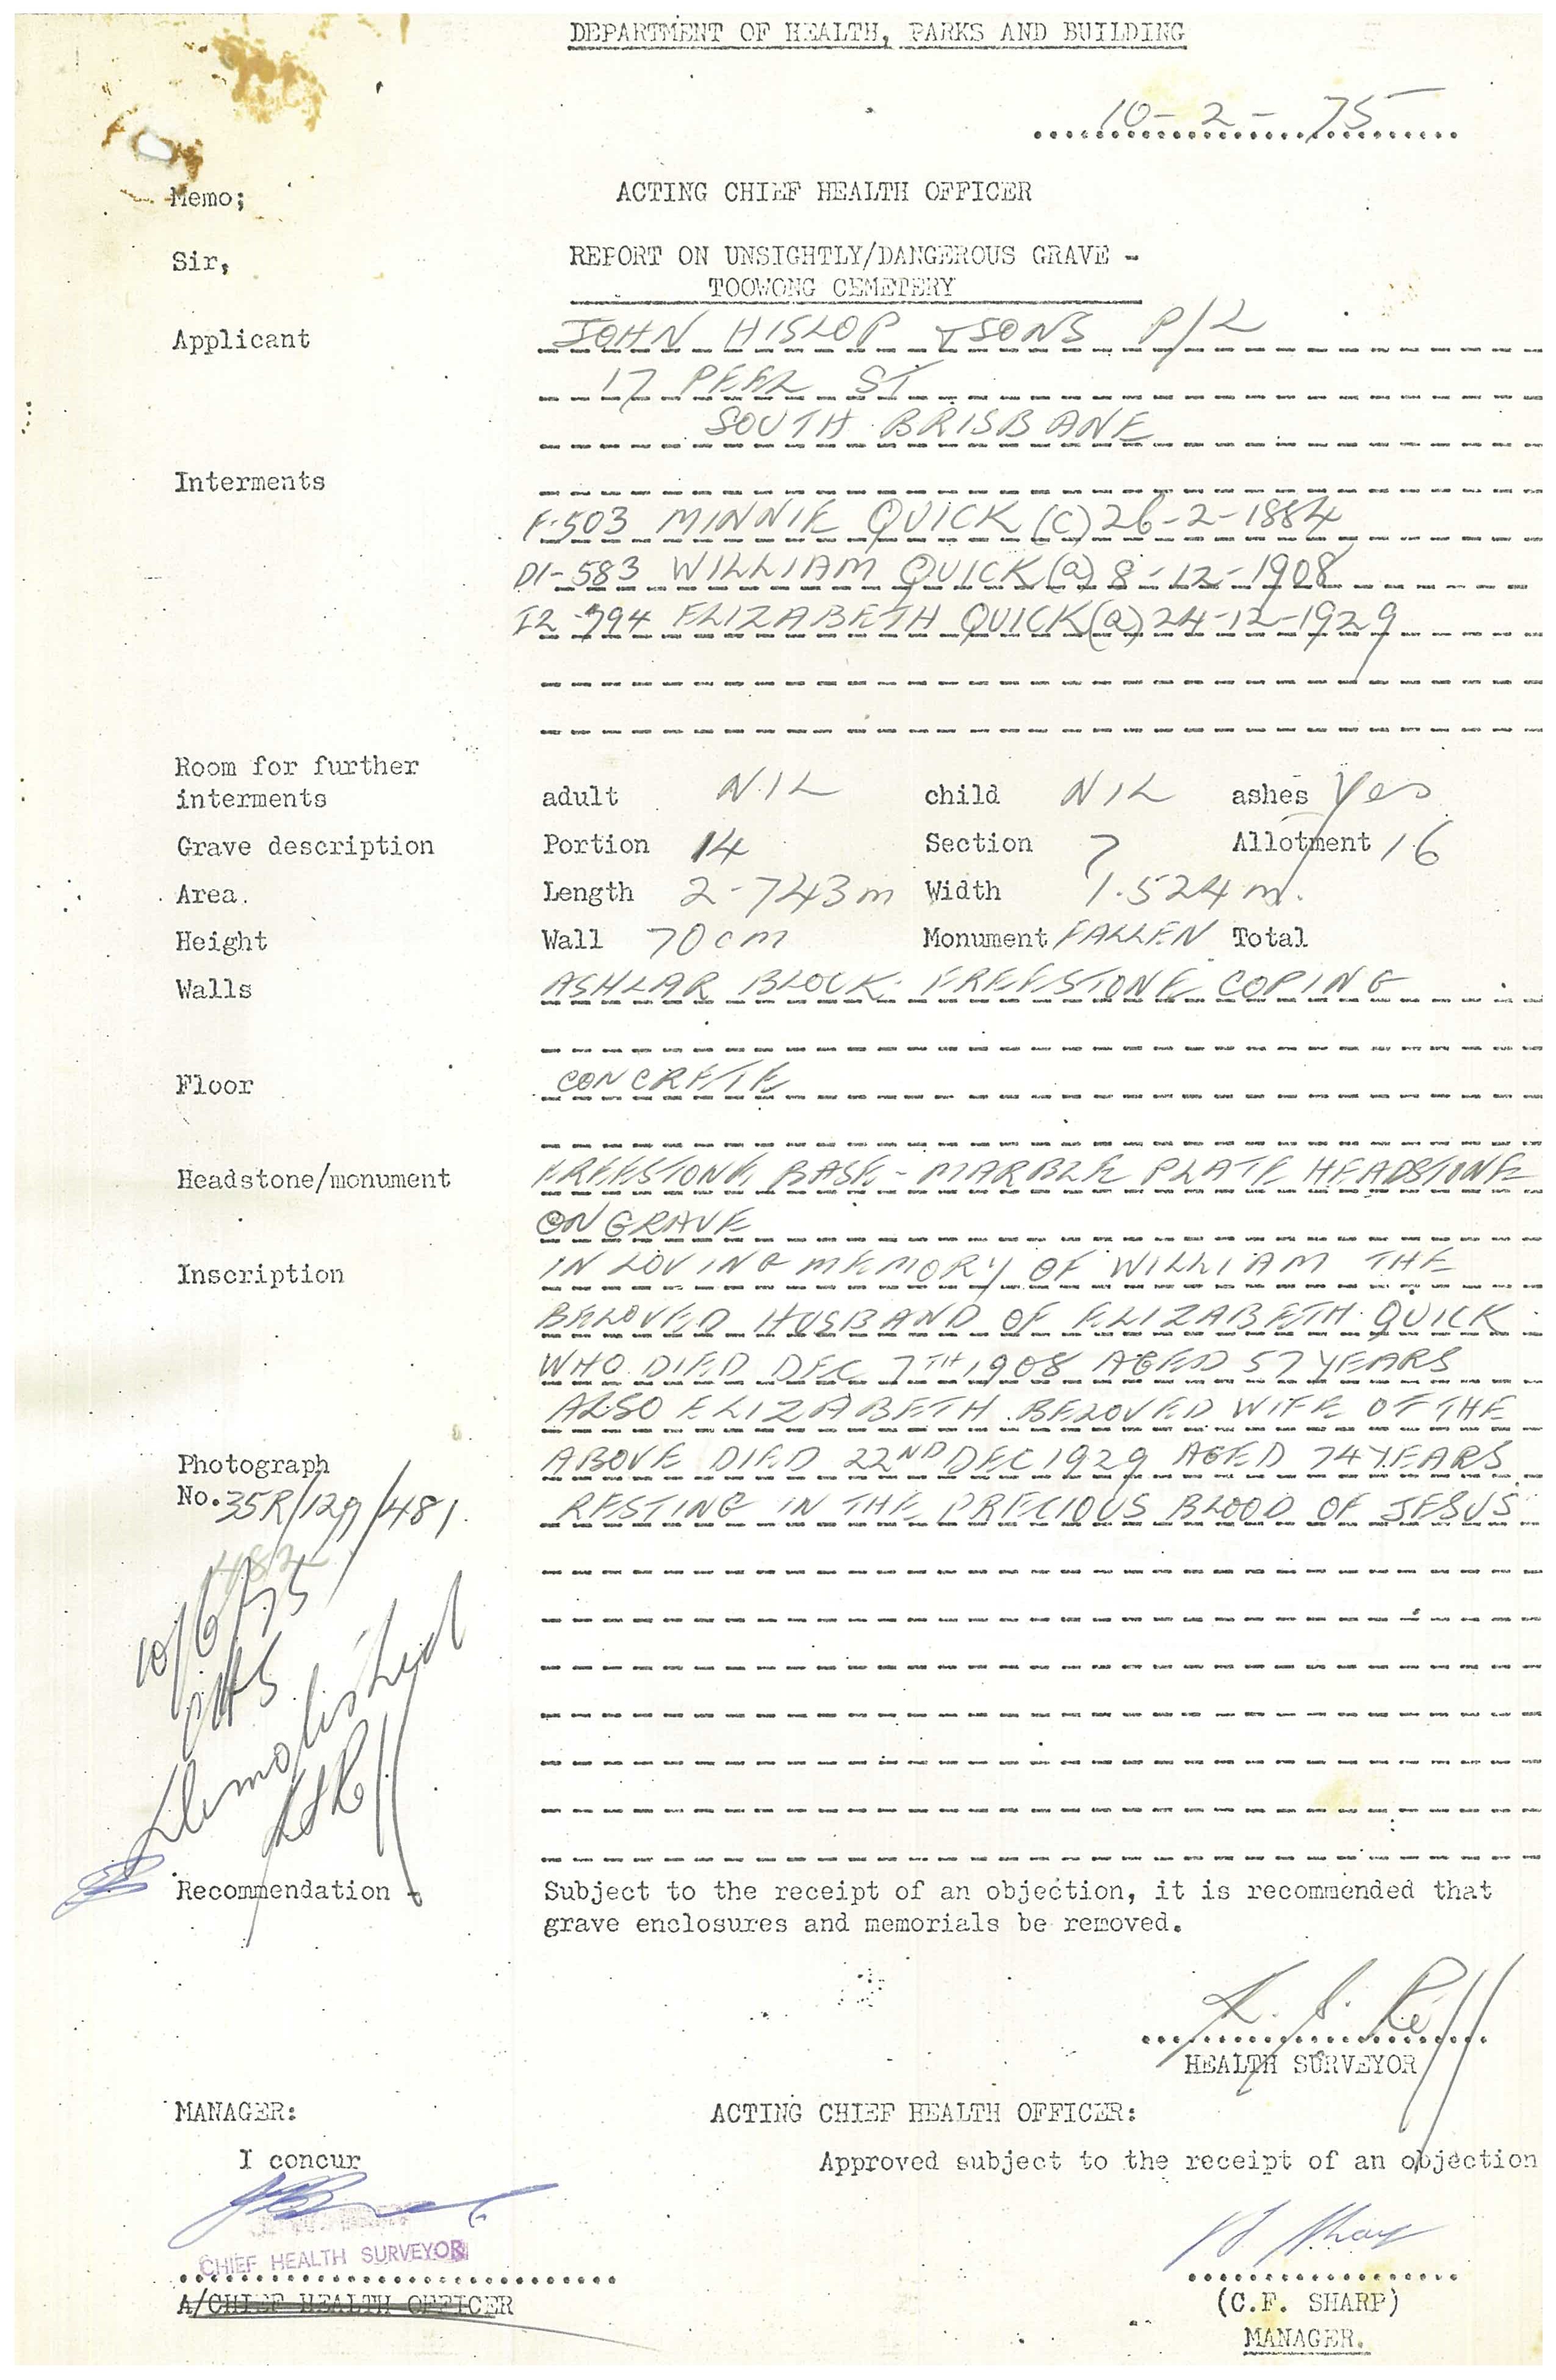 DEPARTMENT OF HEALTH, PARKS AND BUILDING
10-2-75
Memo; ACTING CHIEF HEALTH OFFICER
Sir, REPORT ON UNSIGHTLY/DANGEROUS GRAVE -
TOOWONG CEMETERY
Applicant JOHN HISLOP & SONS P/L
17 PEEL ST
SOUTH BRISBANE
Interments
F.503 MINNIE QUICK (C) 26-2-1884
D1-583 WILLIAM QUICK (a) 8-12-1908
I2-794 ELIZABETH QUICK (a) 24-12-1929
Room for further
interments adult NIL child NIL ashes Yes
Grave description Portion 14 Section 7 Allotment 16
Area. Length 2-743m Width 1.524m.
Height Wall 70cm Monument FALLEN Total
Walls ASHLAR BLOCK. FREESTONE COPING
Floor CONCRETE
Headstone/monument FREESTONE BASE - MARBLE PLATE HEADSTONE
ON GRAVE
Inscription IN LOVING MEMORY OF WILLIAM THE
BELOVED HUSBAND OF ELIZABETH QUICK
WHO DIED DEC 7TH 1908 AGED 57 YEARS
ALSO ELIZABETH BELOVED WIFE OF THE
Photograph ABOVE DIED 22ND DEC 1929 AGED 74 YEARS
No. 35R/129/481. RESTING IN THE PRECIOUS BLOOD OF JESUS
482
10/6/75
Demolished
Recommendation - Subject to the receipt of an objection, it is recommended that
grave enclosures and memorials be removed.
HEALTH SURVEYOR
MANAGER: ACTING CHIEF HEALTH OFFICER:
I concur Approved subject to the receipt of an objection
CHIEF HEALTH SURVEYOR
A/CHIEF HEALTH OFFICER (C.F. SHARP)
MANAGER.